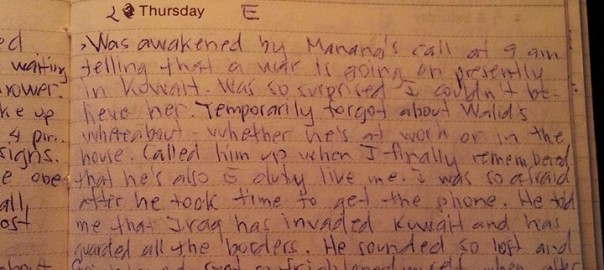 2 Thursday E
ed
waiting
rower.
ke up
4 pm.
signs.
e obe
all,
ost
about
Was awakened by Manang's call at 9 am
telling that a war is going on presently
in Kuwait. Was so surprised I couldn't be-
lieve her. Temporarily forgot about Walid's
whereabout - whether he's at work or in the
house. Called him up when I finally remembered
that he's also E duty like me. I was so afraid
after he took time to get the phone. He told
me that Iraq has invaded Kuwait and has
guarded all the borders. He sounded so and